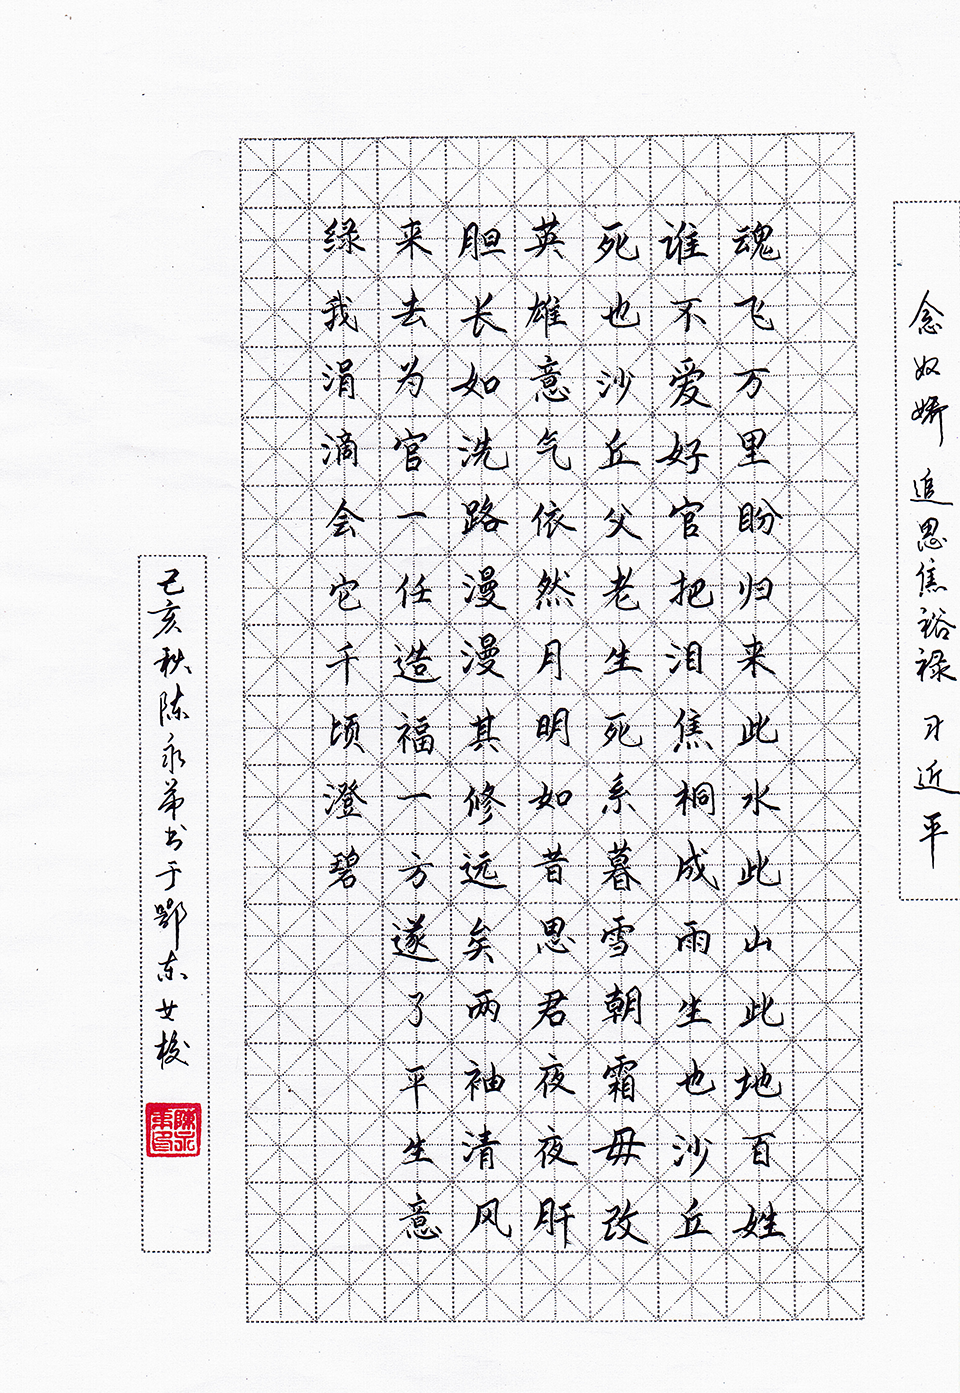 念奴娇 追思焦裕禄 习近平
魂飞万里盼归来此水此山此地百姓
谁不爱好官把泪焦桐成雨生也沙丘
死也沙丘父老生死系暮雪朝霜毋改
英雄意气依然月明如昔思君夜夜肝
胆长如洗路漫漫其修远矣两袖清风
来去为官一任造福一方遂了平生意
绿我涓滴会它千顷澄碧
己亥秋陈永弟书于鄂东女校